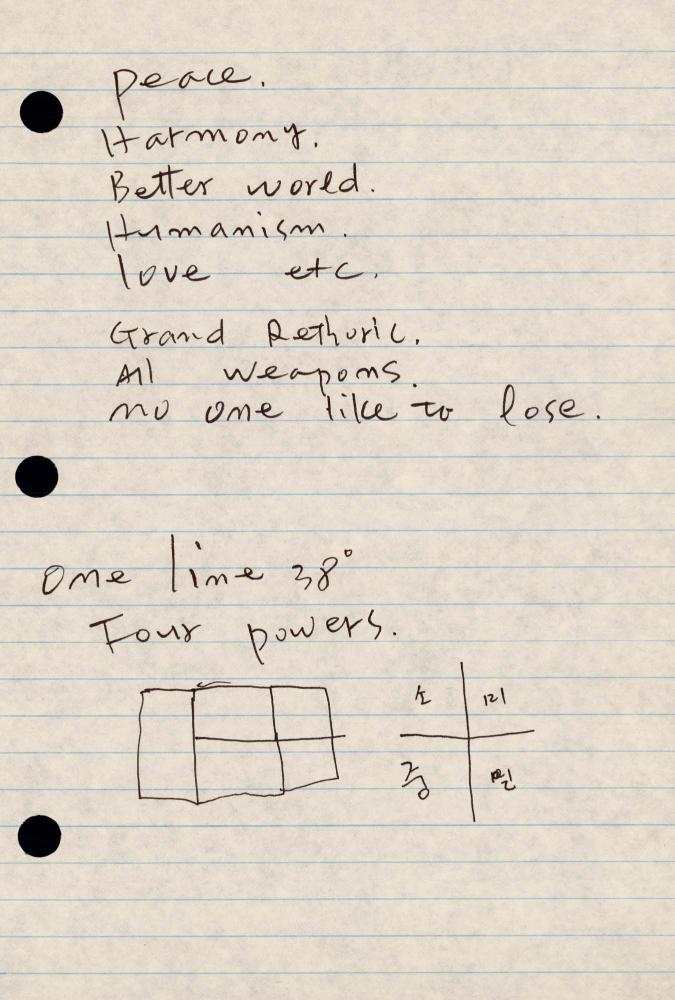 peace.
Harmony.
Better world.
Humanism.
love etc.
Grand Rethoric.
All weapons.
no one like to lose.
one line 38°
Four powers.
소 미
중 일